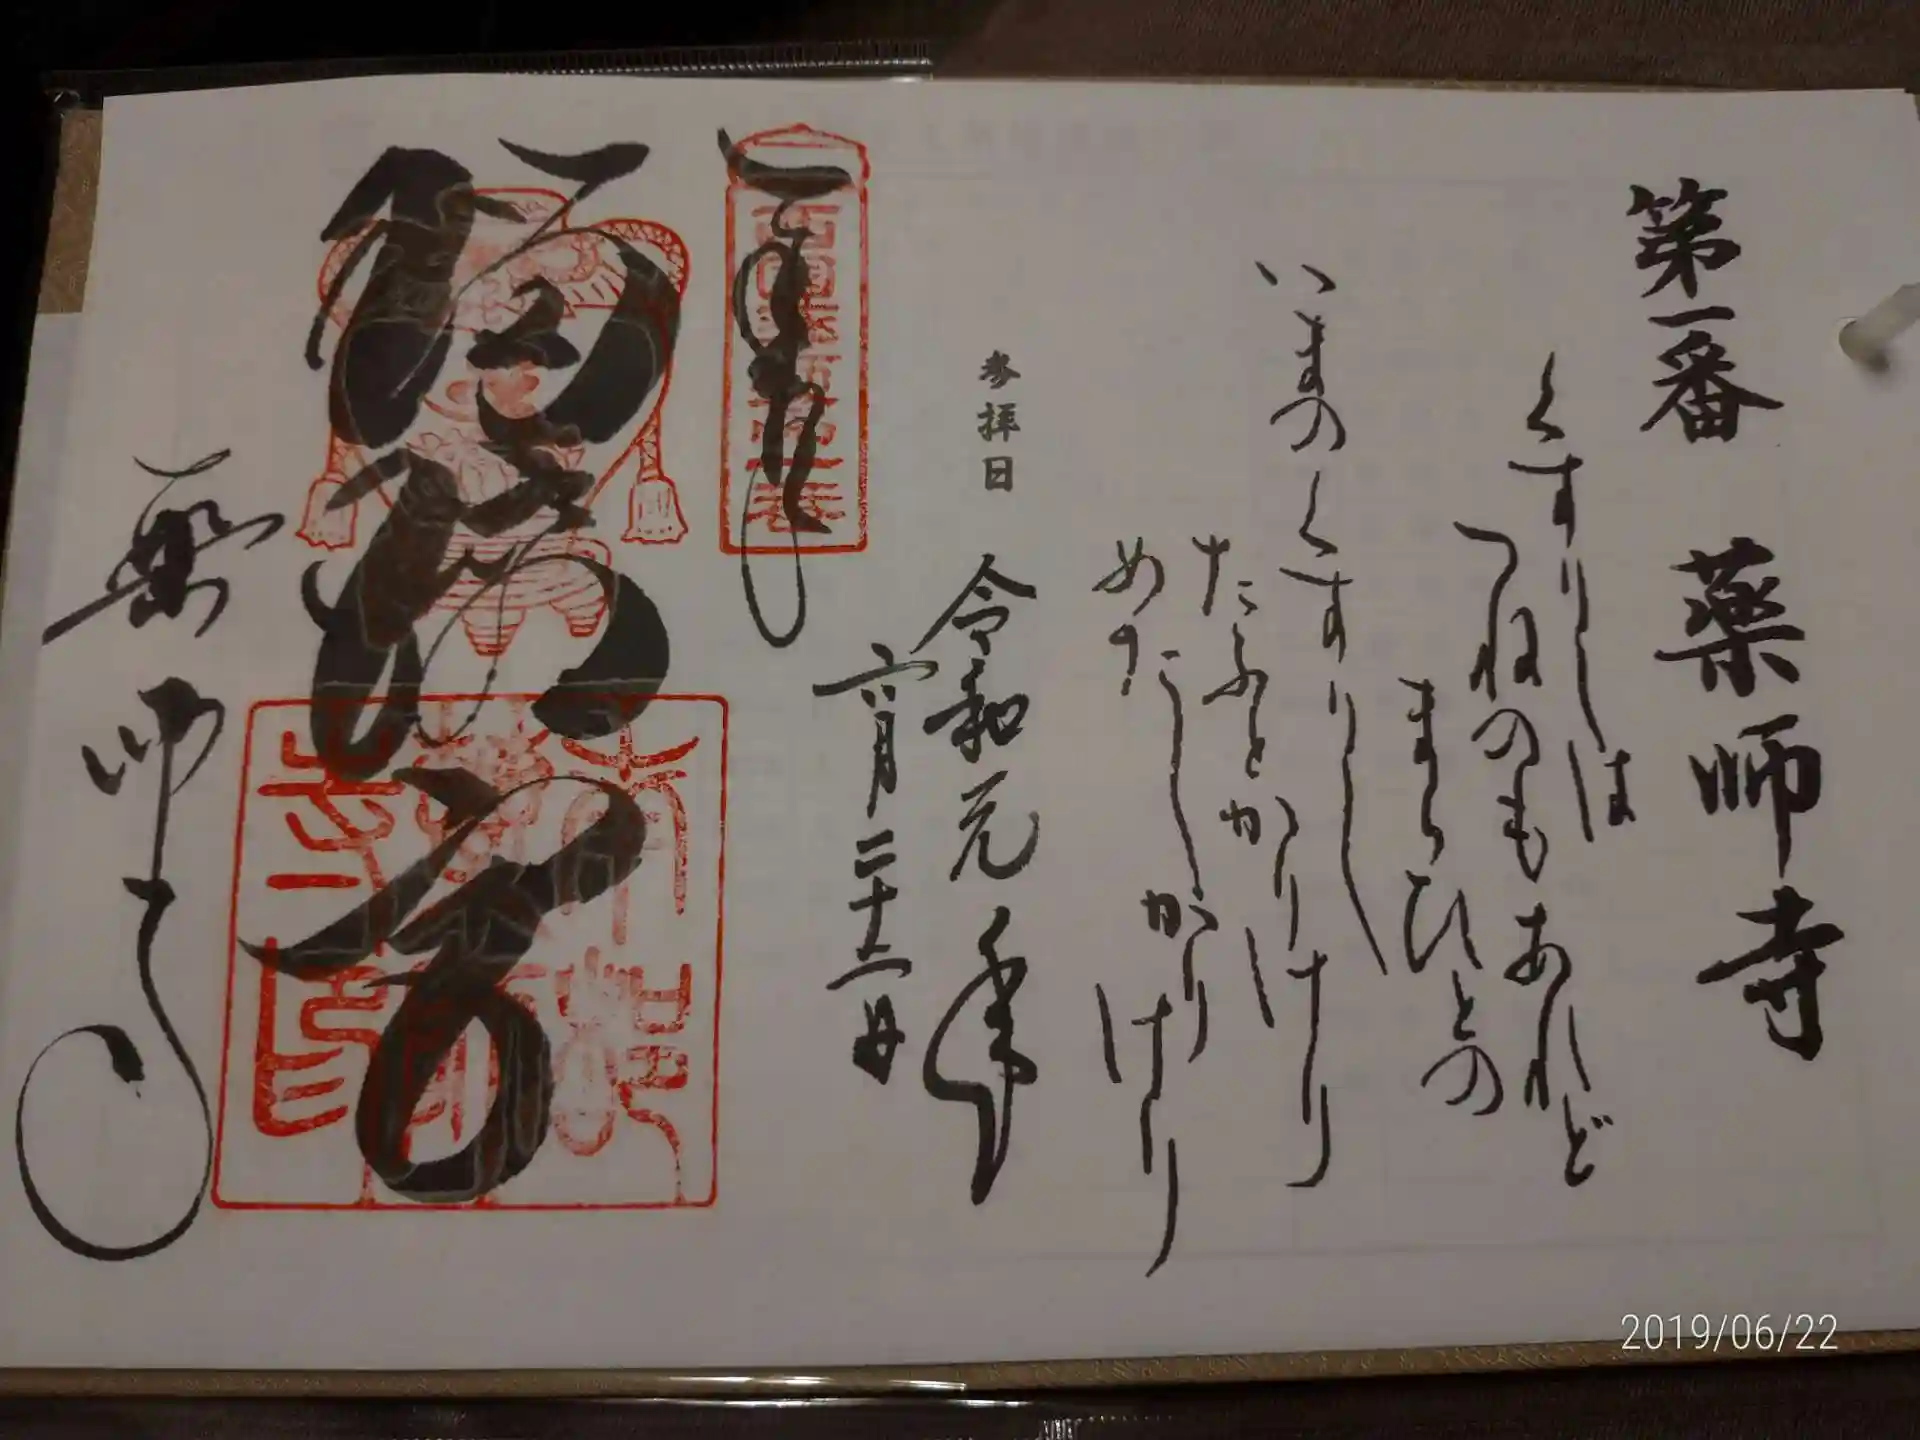 第一番 薬師寺
くすりしは
つねのもあれど
まらひとの
いまのくすりし
たふとかりけり
めだしかりけり
参拝日
令和元年
六月二十二日
奉拝
西国薬師第一番
瑠璃宮
薬師寺
2019/06/22